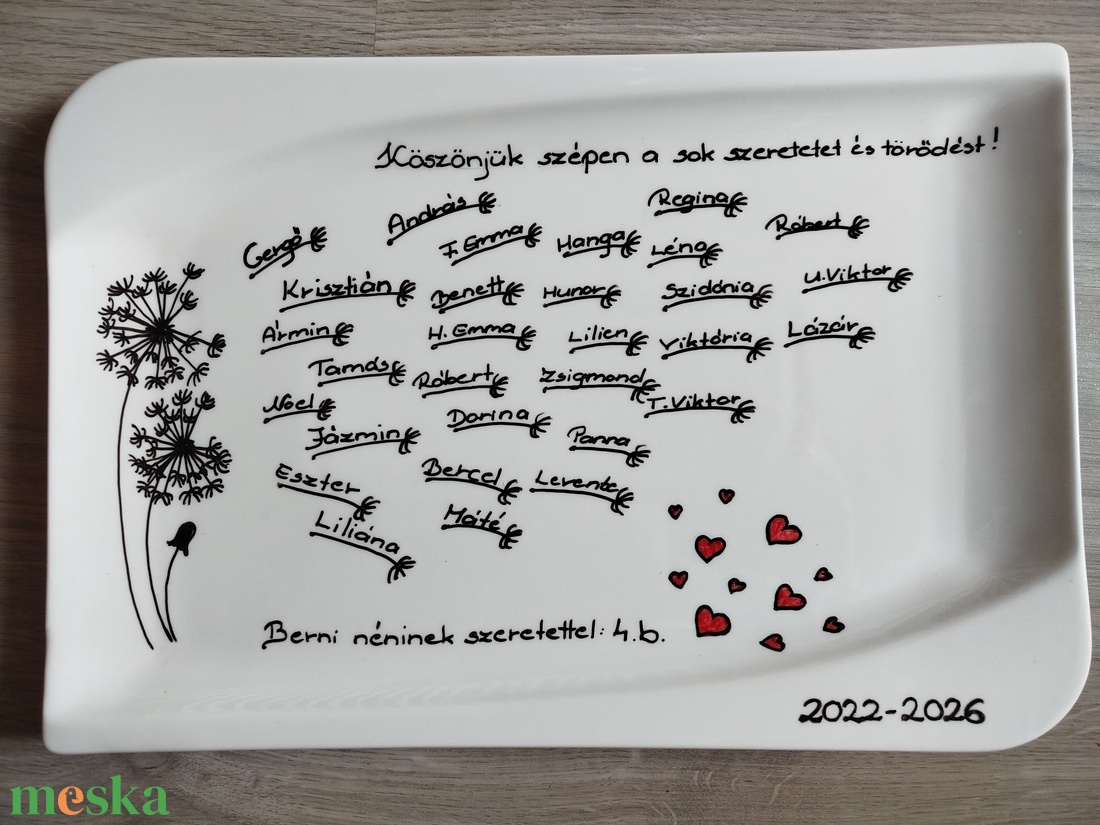 Köszönjük szépen a sok szeretetet és törődést!
András
Regina
Gergő
F. Emma
Hanga
Léna
Róbert
Krisztián
Benett
Hunor
Szidónia
U. Viktor
Ármin
H. Emma
Lilien
Viktória
Lázár
Tamás
Róbert
Zsigmond
T. Viktor
Noel
Dorina
Jázmin
Panna
Eszter
Bercel
Levente
Liliána
Máté
Berni néninek szeretettel: 4.b.
2022-2026
meska